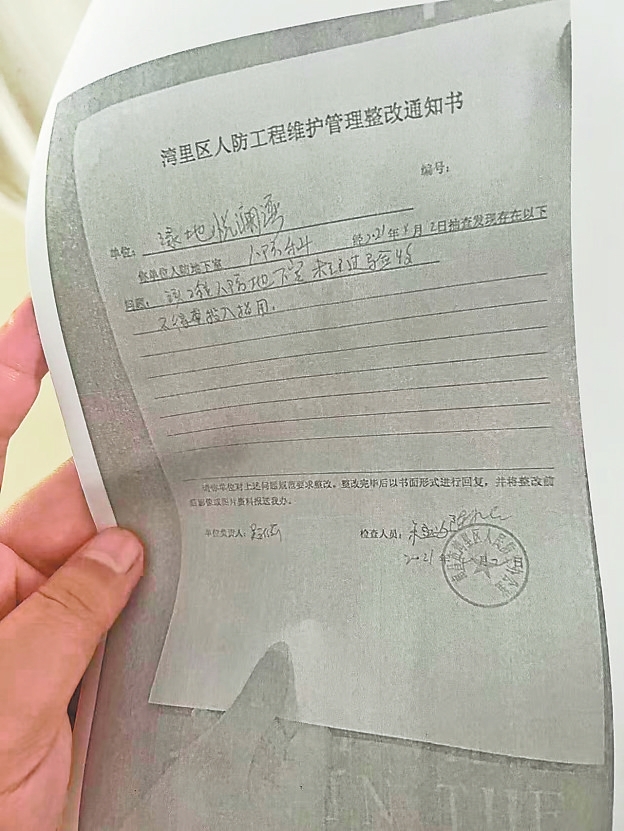 湾里区人防工程维护管理整改通知书
编号：
单位：绿地悦澜湾
你单位人防地下室 人防科 经2021年 月2日抽查发现存在以下
问题：该 人防地下室未经过验收
不得 投入
请你单位对上述问题规范要求整改。整改完毕后以书面形式进行回复，并将整改前
后影像或图片资料报送我办。
单位负责人：
检查人员：
2021年 月2日
湾里区人民防空
IN THE